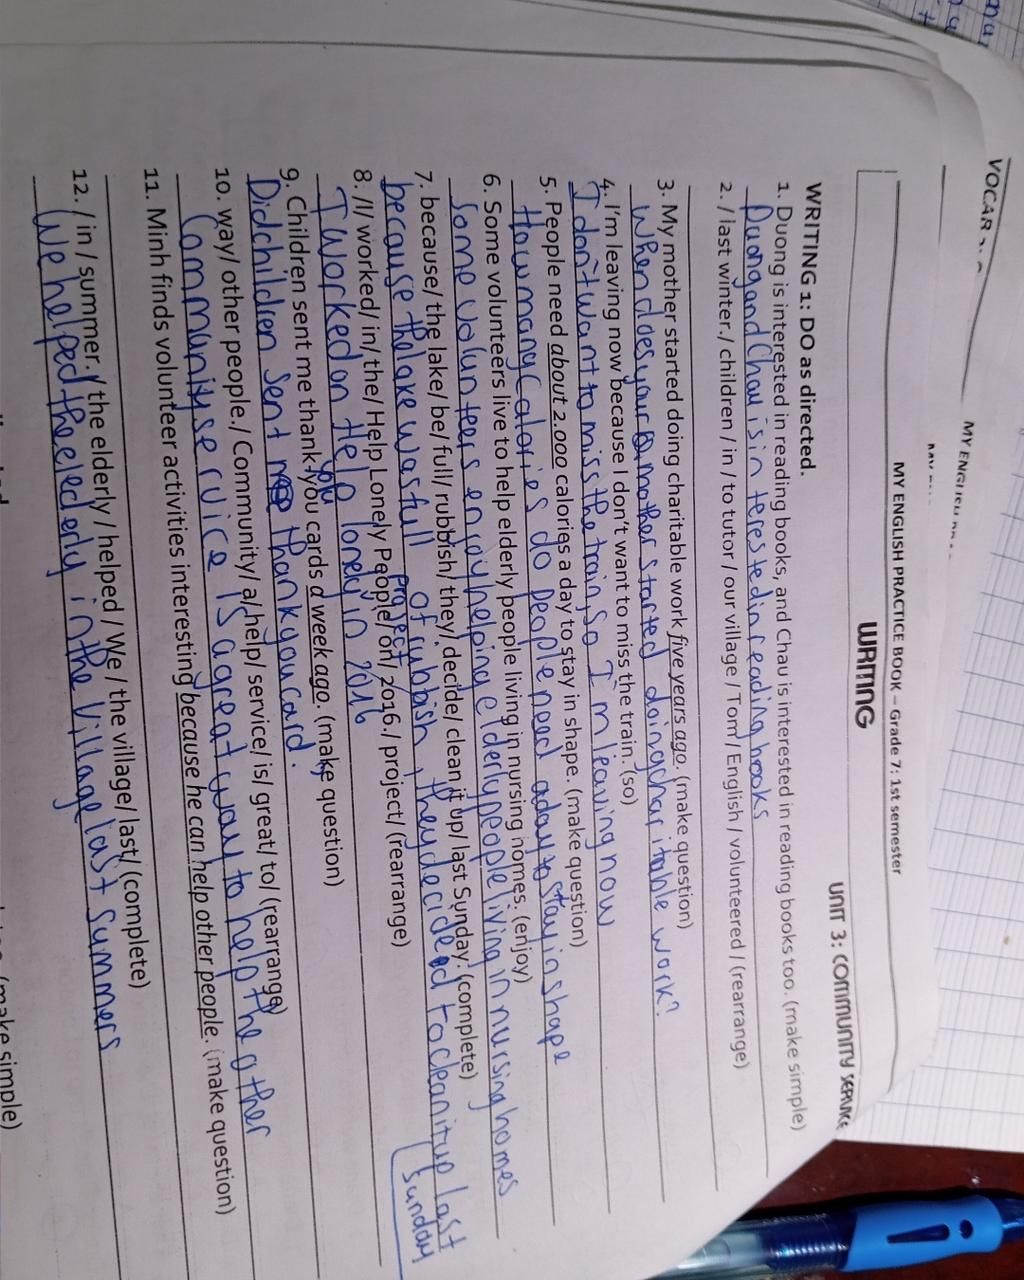 VOCAB
MY ENGLISH
MY ENGLISH PRACTICE BOOK – Grade 7: 1st semester
WRITING
UNIT 3: COMMUNITY SERVICE
WRITING 1: DO as directed.
1. Duong is interested in reading books, and Chau is interested in reading books too. (make simple)
Duong and Chau is in terested in reading books
2. / last winter./ children / in / to tutor / our village / Tom / English / volunteered / (rearrange)
3. My mother started doing charitable work five years ago. (make question)
When does your mother started doing charitable work?
4. I'm leaving now because I don't want to miss the train. (so)
I don't want to miss the train, so I'm leaving now
5. People need about 2.000 calories a day to stay in shape. (make question)
How many Calories do people need a day to stay in shape
6. Some volunteers live to help elderly people living in nursing homes. (enjoy)
Some volunteers enjoy helping elderly people living in nursing homes
7. because/ the lake/ be/ full/ rubbish/ they/ decide/ clean it up/ last Sunday. (complete)
because the lake was full of rubbish, they decided to clean it up last Sunday
8. /I/ worked/ in/ the/ Help Lonely People/ on/ 2016./ project/ (rearrange)
I worked on Help lonely project in 2016
9. Children sent me thank-you cards a week ago. (make question)
Did children sent me thank you card.
10. way/ other people./ Community/ a/ help/ service/ is/ great/ to/ (rearrange)
Community service is a great way to help the other
11. Minh finds volunteer activities interesting because he can help other people. (make question)
12. / in / summer./ the elderly / helped / We / the village/ last/ (complete)
We helped the elederly in the village last summers
(make simple)